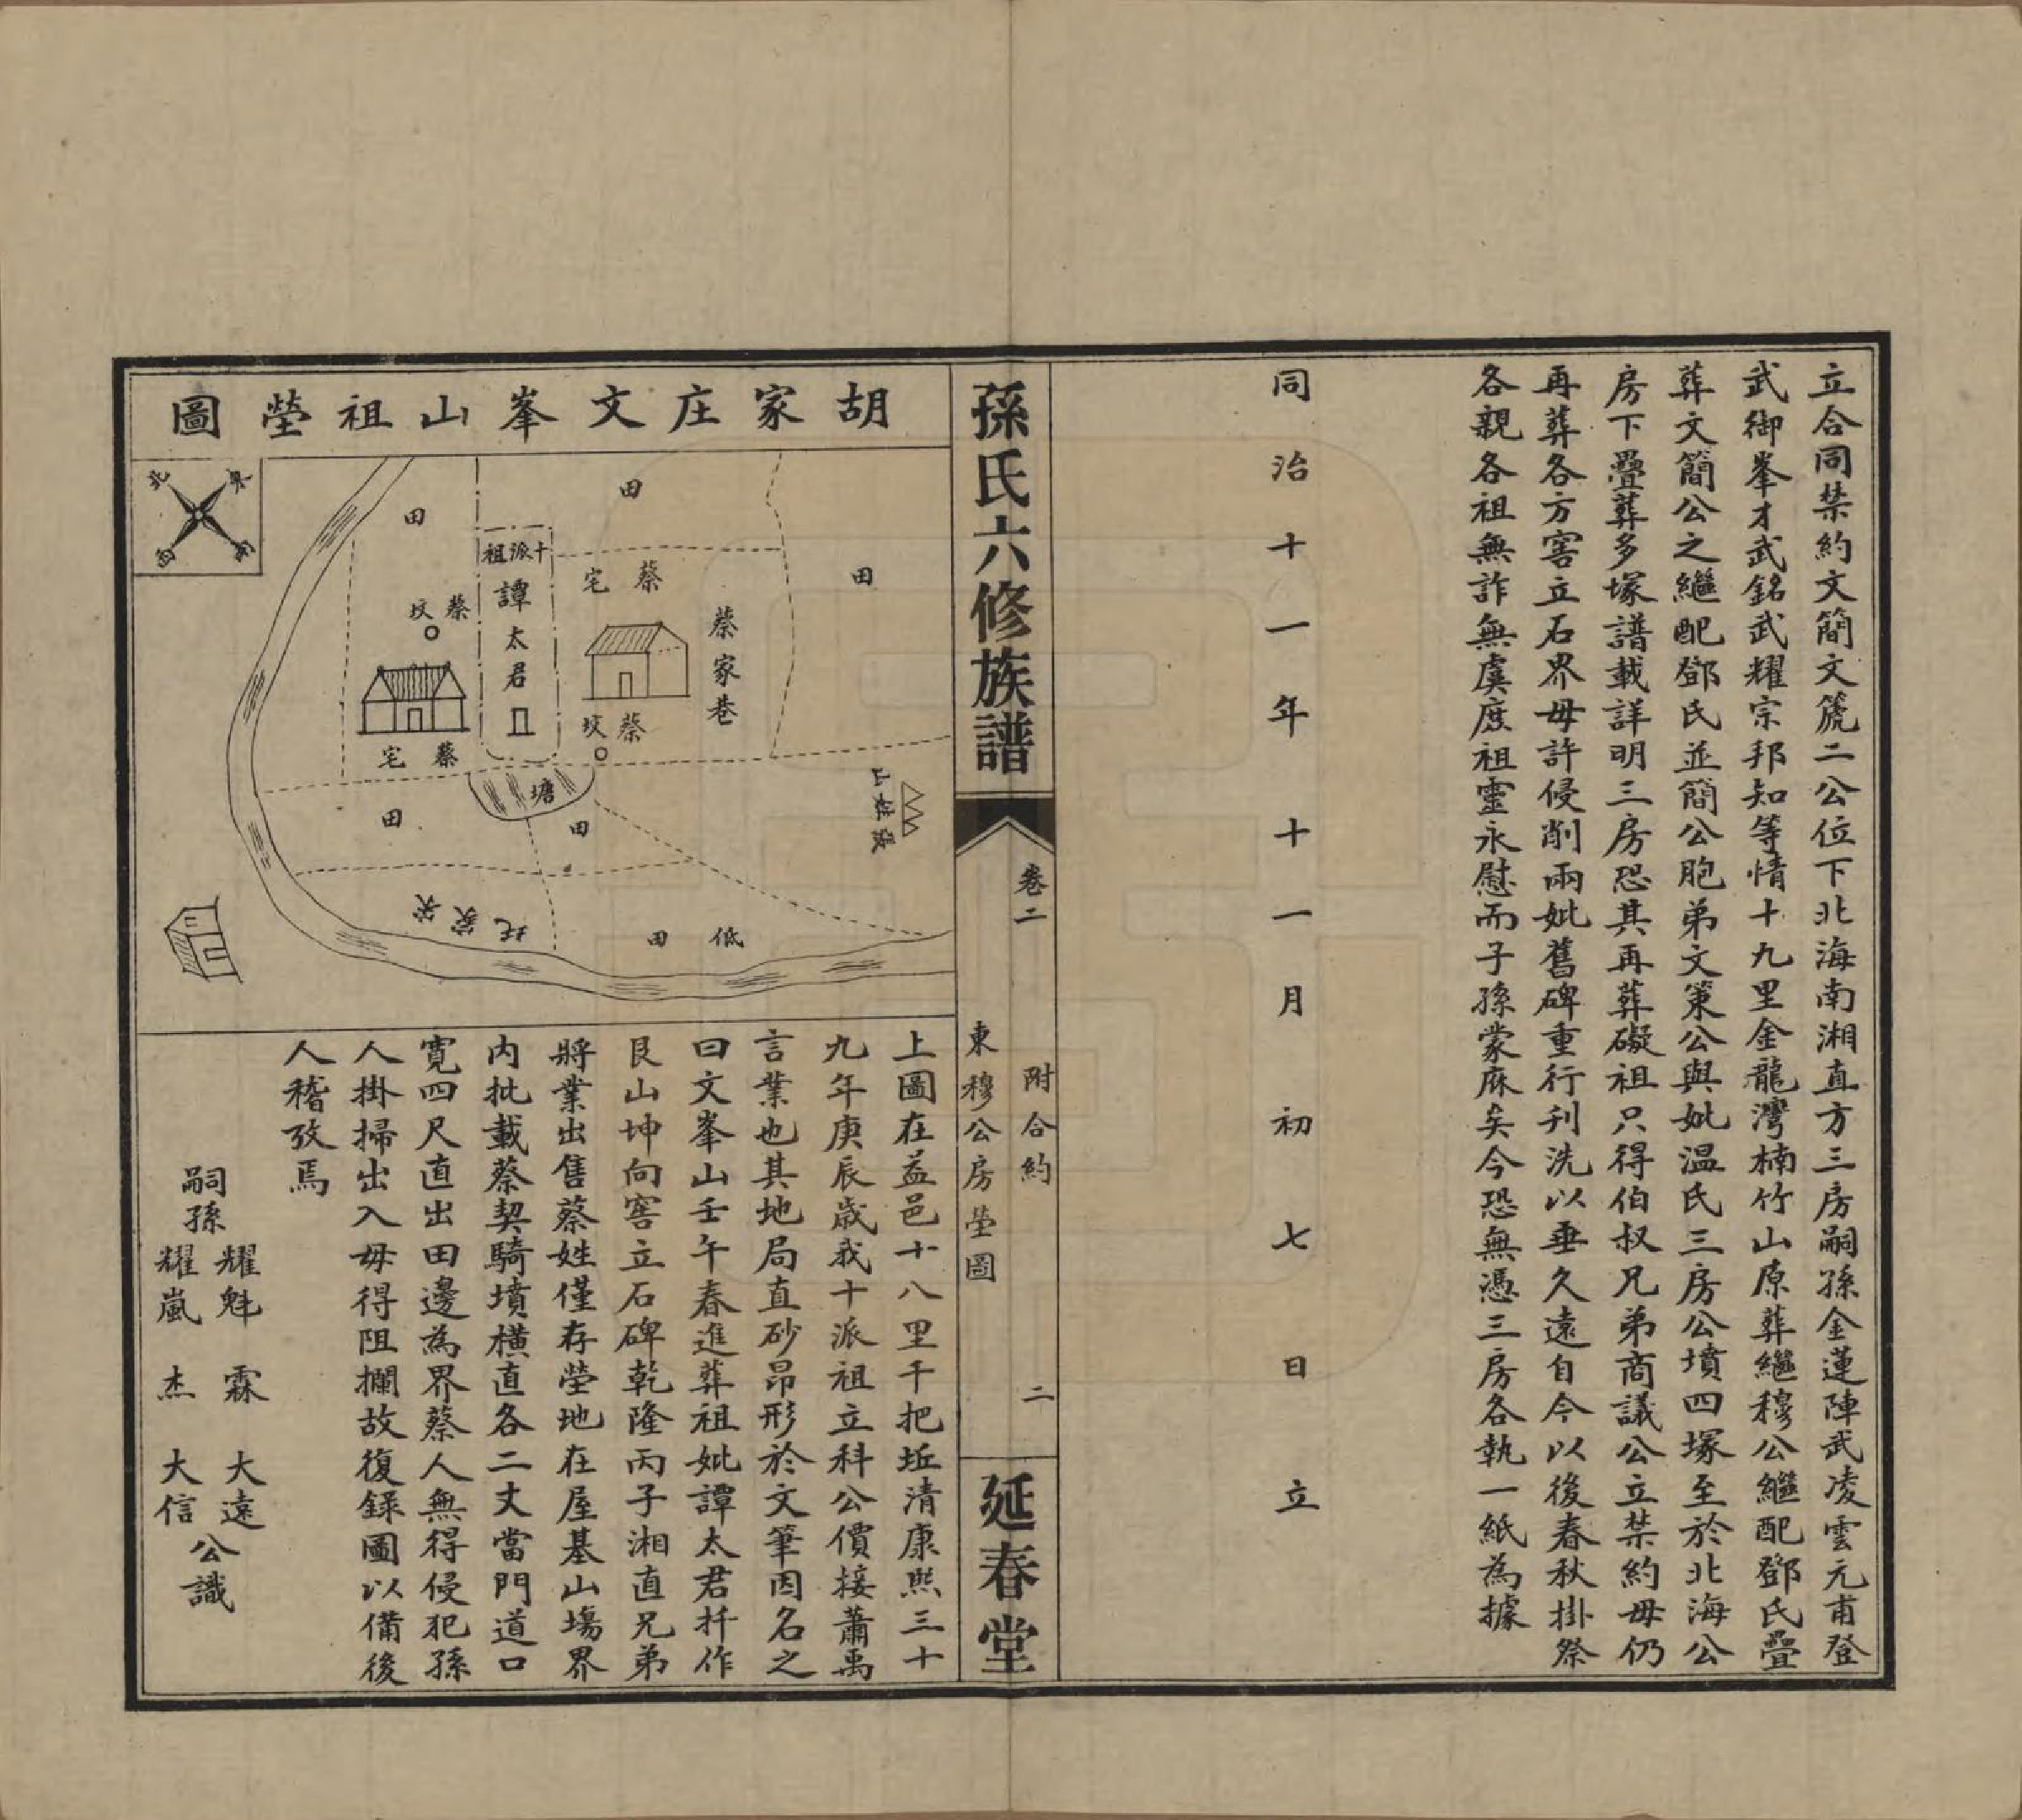 立合同禁約文簡文篪二公位下北海南湘直方三房嗣孫金蓮陣武凌雲元甫登
武御峯才武銘武耀宗邦知等情十九里金龍灣楠竹山原葬繼穆公繼配鄧氏疊
葬文簡公之繼配鄧氏並簡公胞弟文策公與妣温氏三房公墳四塚至於北海公
房下疊葬多塚譜載詳明三房恐其再葬礙祖只得伯叔兄弟商議公立禁約毋仍
再葬各方窖立石界毋許侵削兩妣舊碑重行刋洗以垂久遠自今以後春秋掛祭
各親各祖無詐無虞庶祖靈永慰而子孫蒙庥矣今恐無憑三房各執一紙為據
同治十一年十一月初七日立
孫氏六修族譜
卷二
附合約
東穆公房塋圖
二
延春堂
胡家庄文峯山祖塋圖
東
北
田
田
田
十派祖
譚太君
蔡宅
蔡家巷
蔡坟
蔡坟
蔡宅
塘
田
田
低田
上圖在益邑十八里千把坵清康熙三十
九年庚辰歲我十派祖立科公價接蕭禹
言業也其地局直砂昂形於文筆因名之
曰文峯山壬午春進葬祖妣譚太君扦作
艮山坤向窖立石碑乾隆丙子湘直兄弟
將業出售蔡姓僅存塋地在屋基山塲界
内批載蔡契騎墳橫直各二丈當門道口
寬四尺直出田邊為界蔡人無得侵犯孫
人掛掃出入毋得阻攔故復錄圖以備後
人稽攷焉
嗣孫
耀魁 霖 大遠
耀嵐 杰 大信
公識